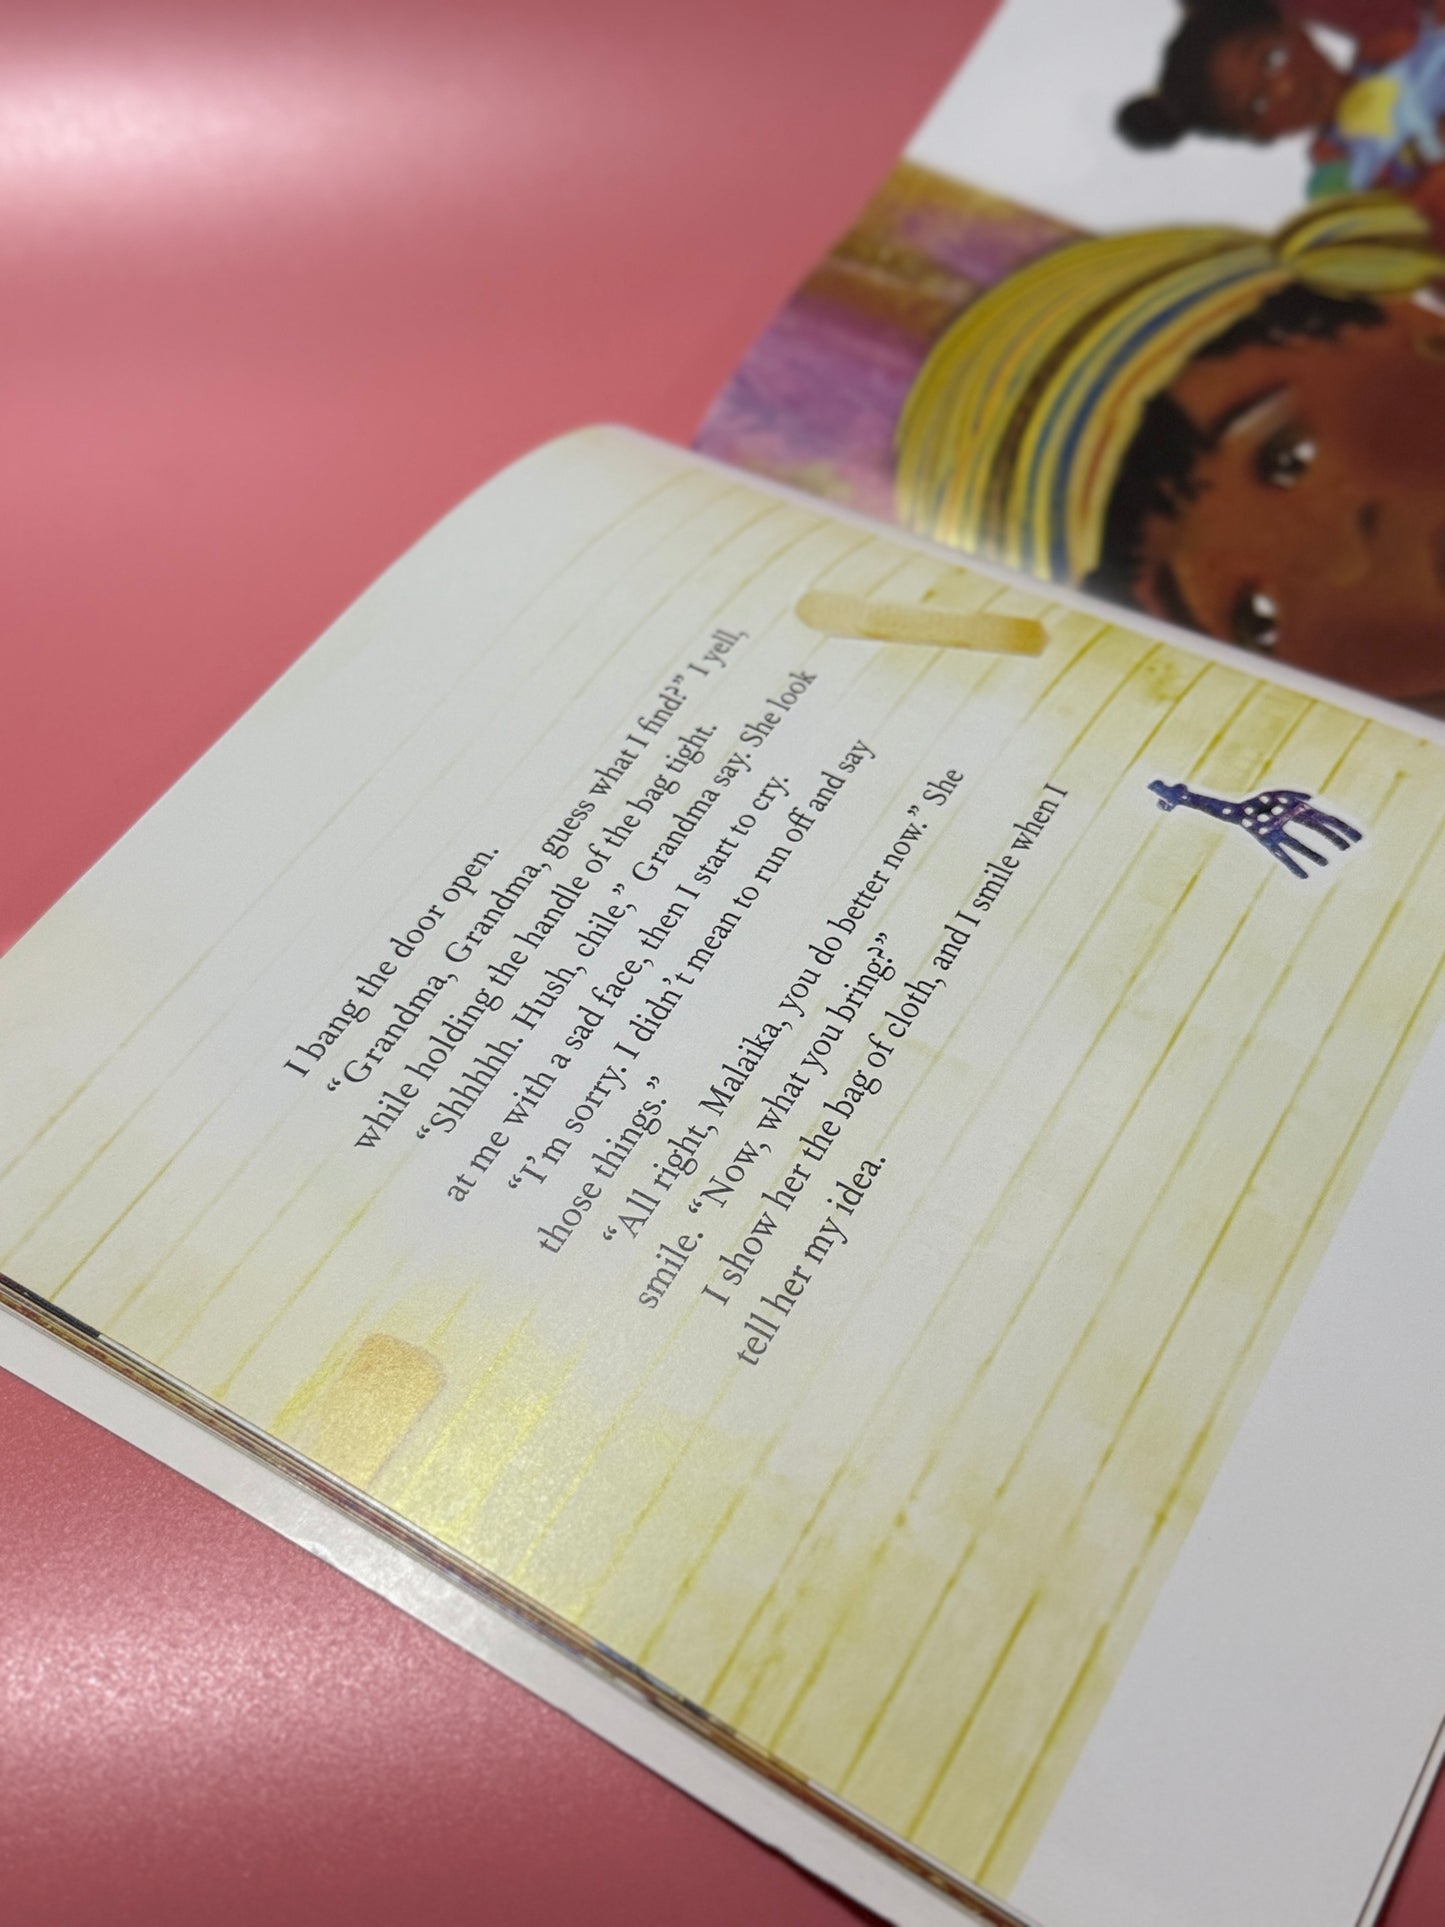 I bang the door open.
“Grandma, Grandma, guess what I find?” I yell,
while holding the handle of the bag tight.
“Shhhhh. Hush, chile,” Grandma say. She look
at me with a sad face, then I start to cry.
“I’m sorry. I didn’t mean to run off and say
those things.”
“All right, Malaika, you do better now.” She
smile. “Now, what you bring?”
I show her the bag of cloth, and I smile when I
tell her my idea.